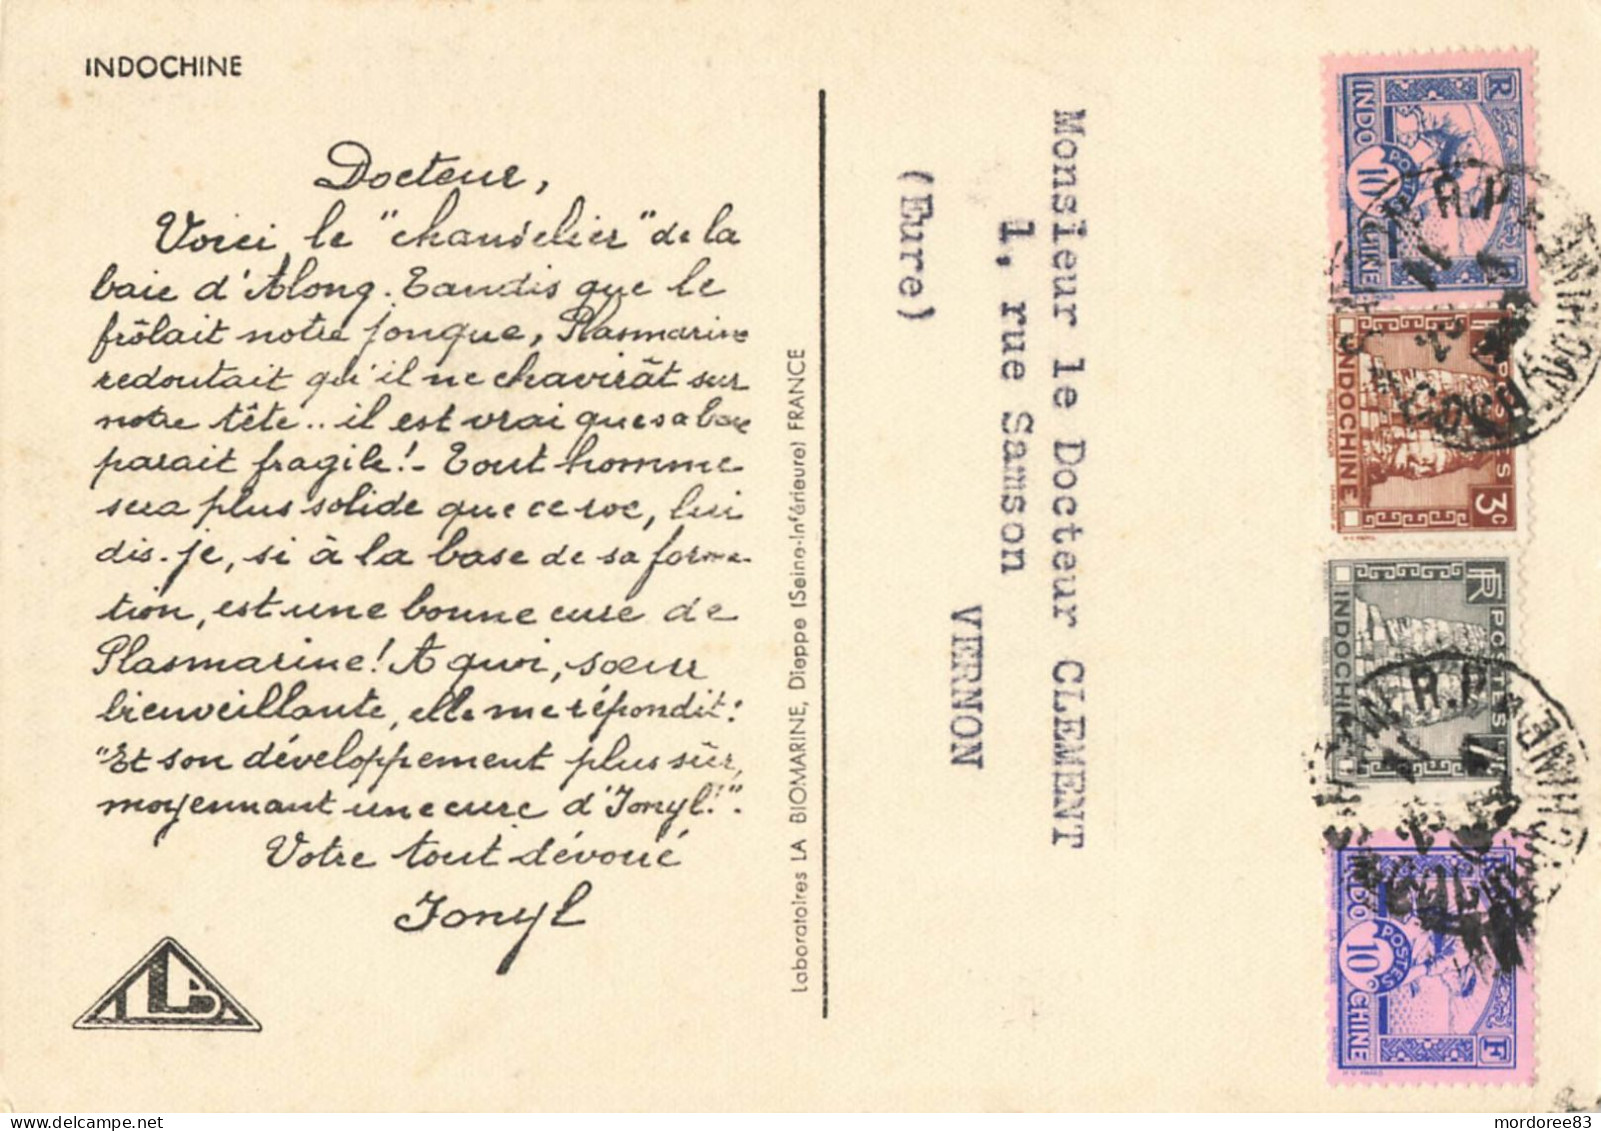 INDOCHINE
Docteur,
Voici le "chandelier" de la
baie d'Along. Tandis que le
frôlait notre jonque, Plasmarine
redoutait qu'il ne chavirât sur
notre tête.. il est vrai que sa base
parait fragile! - Tout homme
sera plus solide que ce roc, lui
dis-je, si à la base de sa forma-
tion, est une bonne cure de
Plasmarine! A quoi, soeur
bienveillante, elle me répondit:
"Et son développement plus sûr,
moyennant une cure d'Ionyl!".
Votre tout dévoué
Ionyl
LBA
Laboratoires LA BIOMARINE, Dieppe (Seine-Inférieure) FRANCE
Monsieur le Docteur CLEMENT
1, rue Samson
VERNON
(Eure)
RF INDOCHINE POSTES 10c
RF POSTES INDOCHINE 3c
RF POSTES INDOCHINE
RF INDOCHINE POSTES 10c
R.P
R.P
mordoree83